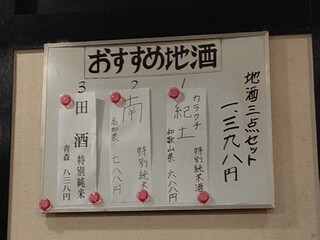 おすすめ地酒
地酒三点セット
一、三九八円
1
カラクチ
紀土
特別純米酒
和歌山県 六八八円
2
南
特別純米
高知県 七八八円
3
田酒 特別純米
青森 八三八円